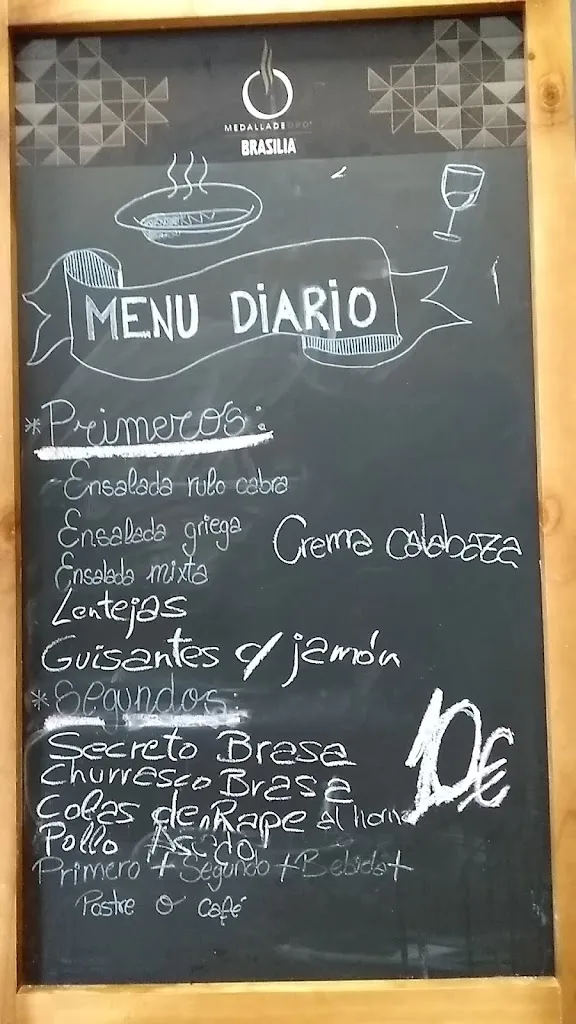 MEDALLADEORO
BRASILIA
MENU DiARiO
*Primeros:
Ensalada rulo cabra
Ensalada griega
Crema calabaza
Ensalada mixta
Lentejas
Guisantes c/ jamón
*Segundos:
Secreto Brasa
Churrasco Brasa
Colas de Rape al horno
Pollo Asado
10€
Primero + Segundo + Bebida +
Postre o café